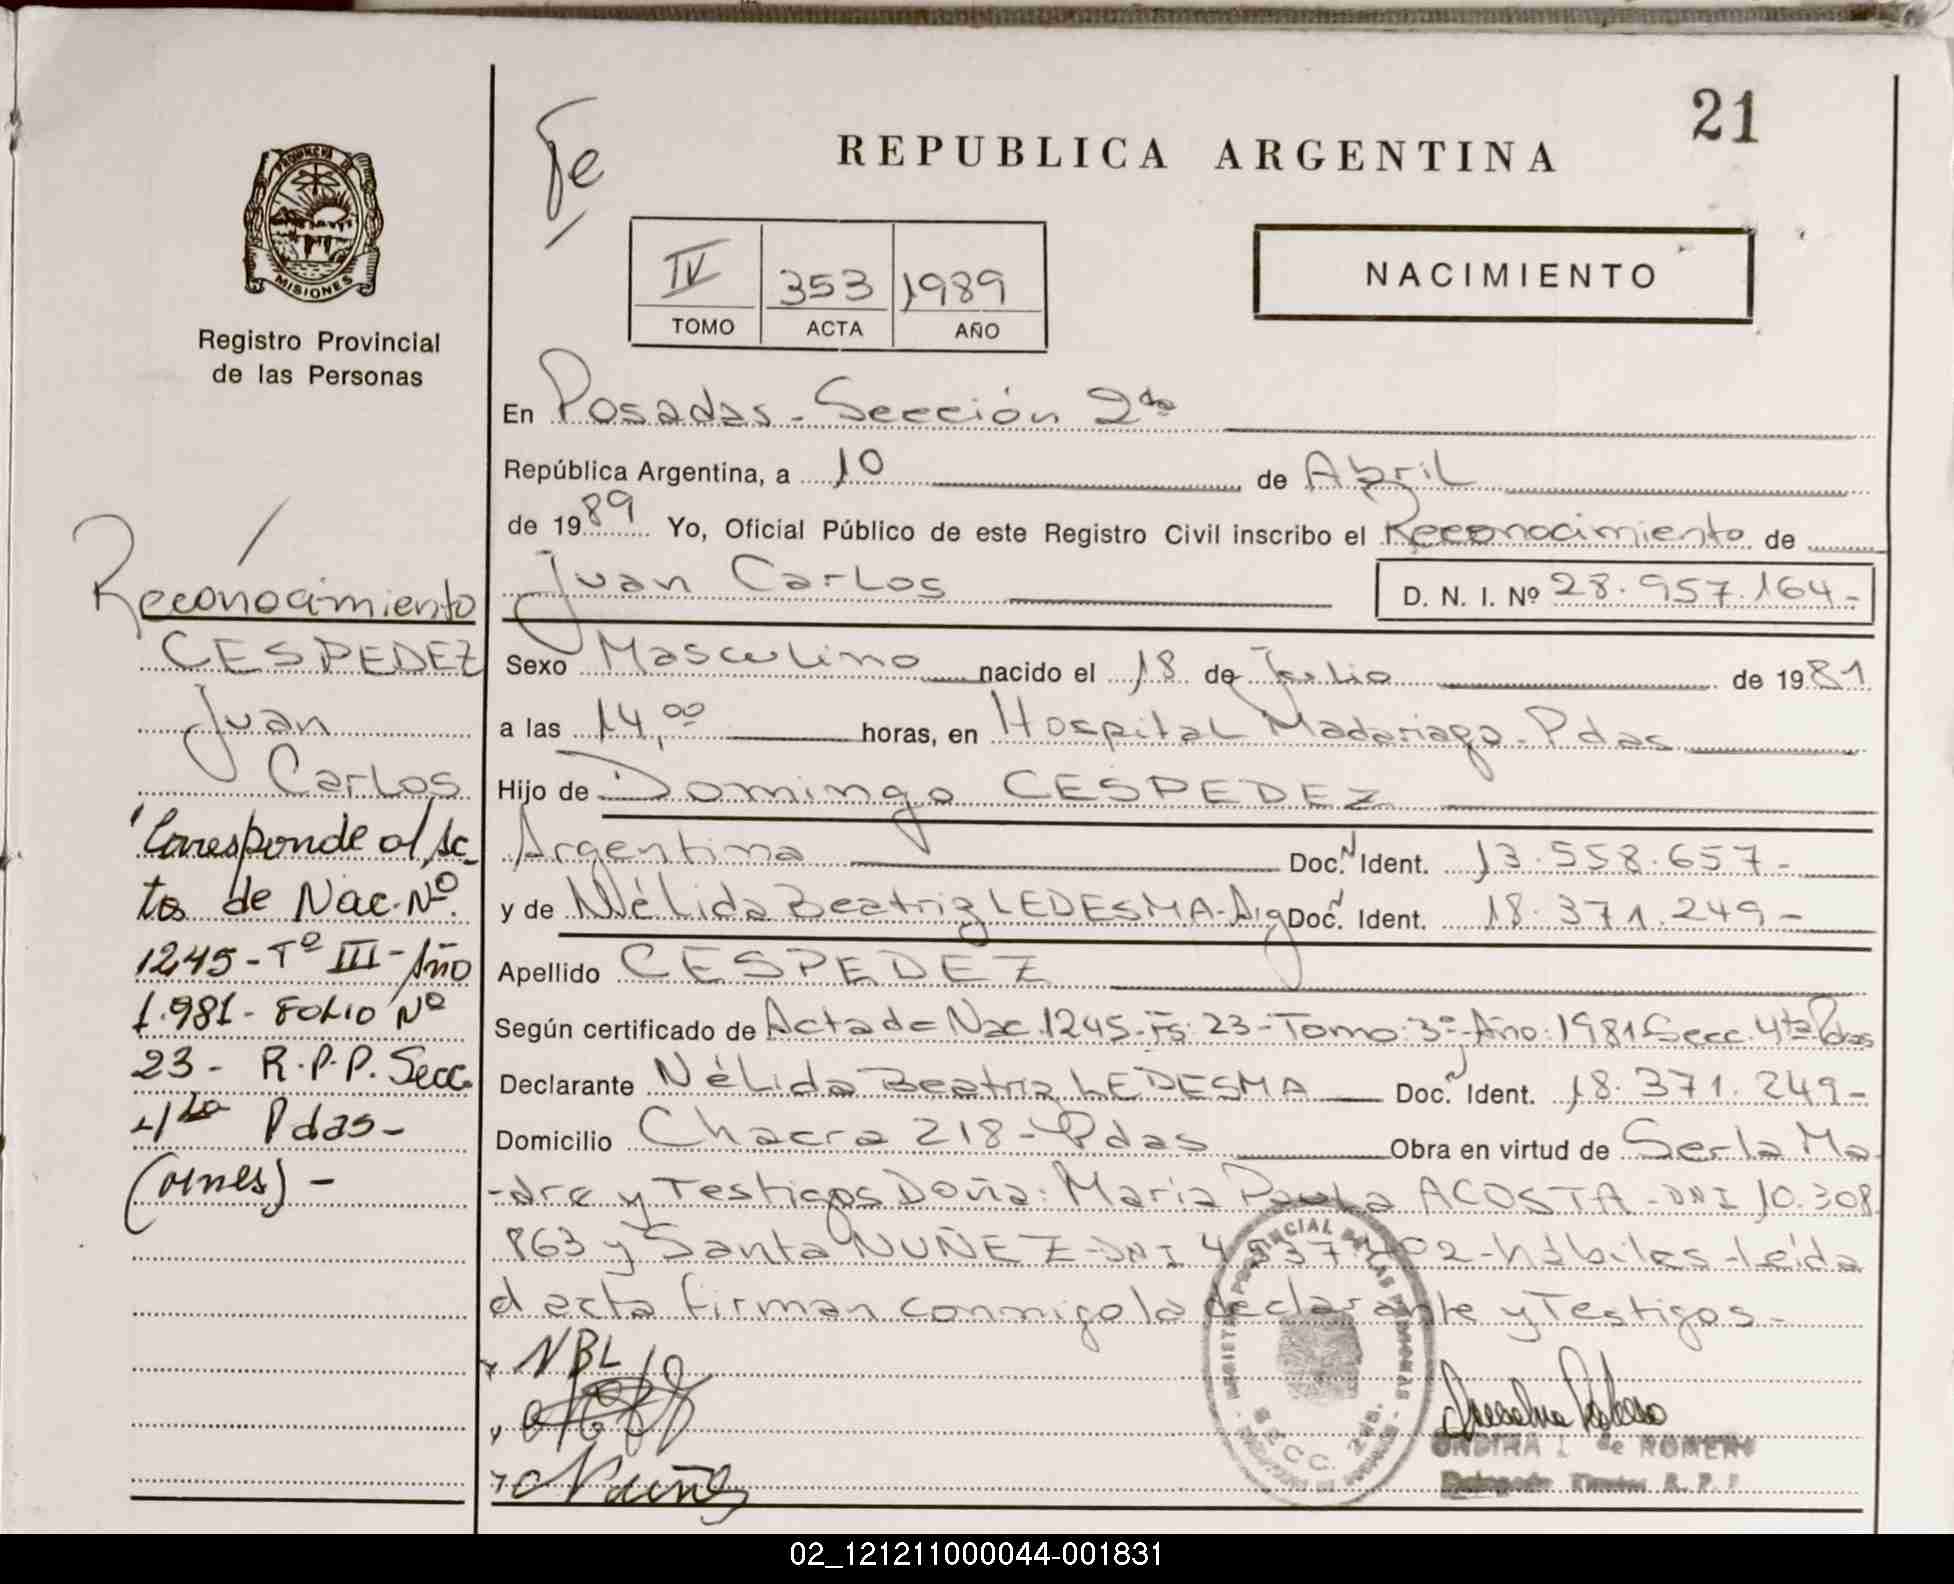 21
Fe
REPUBLICA ARGENTINA
PROVINCIA DE
MISIONES
Registro Provincial
de las Personas
IV 353 1989
TOMO ACTA AÑO
NACIMIENTO
En Posadas - Sección 2da
República Argentina, a 10 de Abril
de 1989 Yo, Oficial Público de este Registro Civil inscribo el Reconocimiento de
Juan Carlos D. N. I. Nº 28.957.164-
Sexo Masculino nacido el 18 de Julio de 1981
a las 14,00 horas, en Hospital Madariaga - Pdas
Hijo de Domingo CESPEDEZ
Argentina Doc. Ident. 13.558.657-
y de Nélida Beatriz LEDESMA - Arg Doc. Ident. 18.371.249-
Apellido CESPEDEZ
Según certificado de Acta de Nac. 1245 - Fs: 23 - Tomo: 3º - Año: 1981 Secc. 4ta Pdas
Declarante Nélida Beatriz LEDESMA Doc. Ident. 18.371.249-
Domicilio Chacra 218 - Pdas Obra en virtud de Ser la Ma
-dre y Testigos Doña: María Paula ACOSTA - DNI 10.308
863 y Santa NUÑEZ - DNI - hábiles - Leída
el acta firman conmigo la declarante y Testigos -
NBL
SECC. 2da.
de ROMERO
Reconocimiento
CESPEDEZ
Juan
Carlos
Corresponde al Ac-
ta de Nac. Nº
1245 - Tº III - Año
1.981 - FOLIO Nº
23 - R.P.P. Secc.
4ta Pdas -
02_121211000044-001831